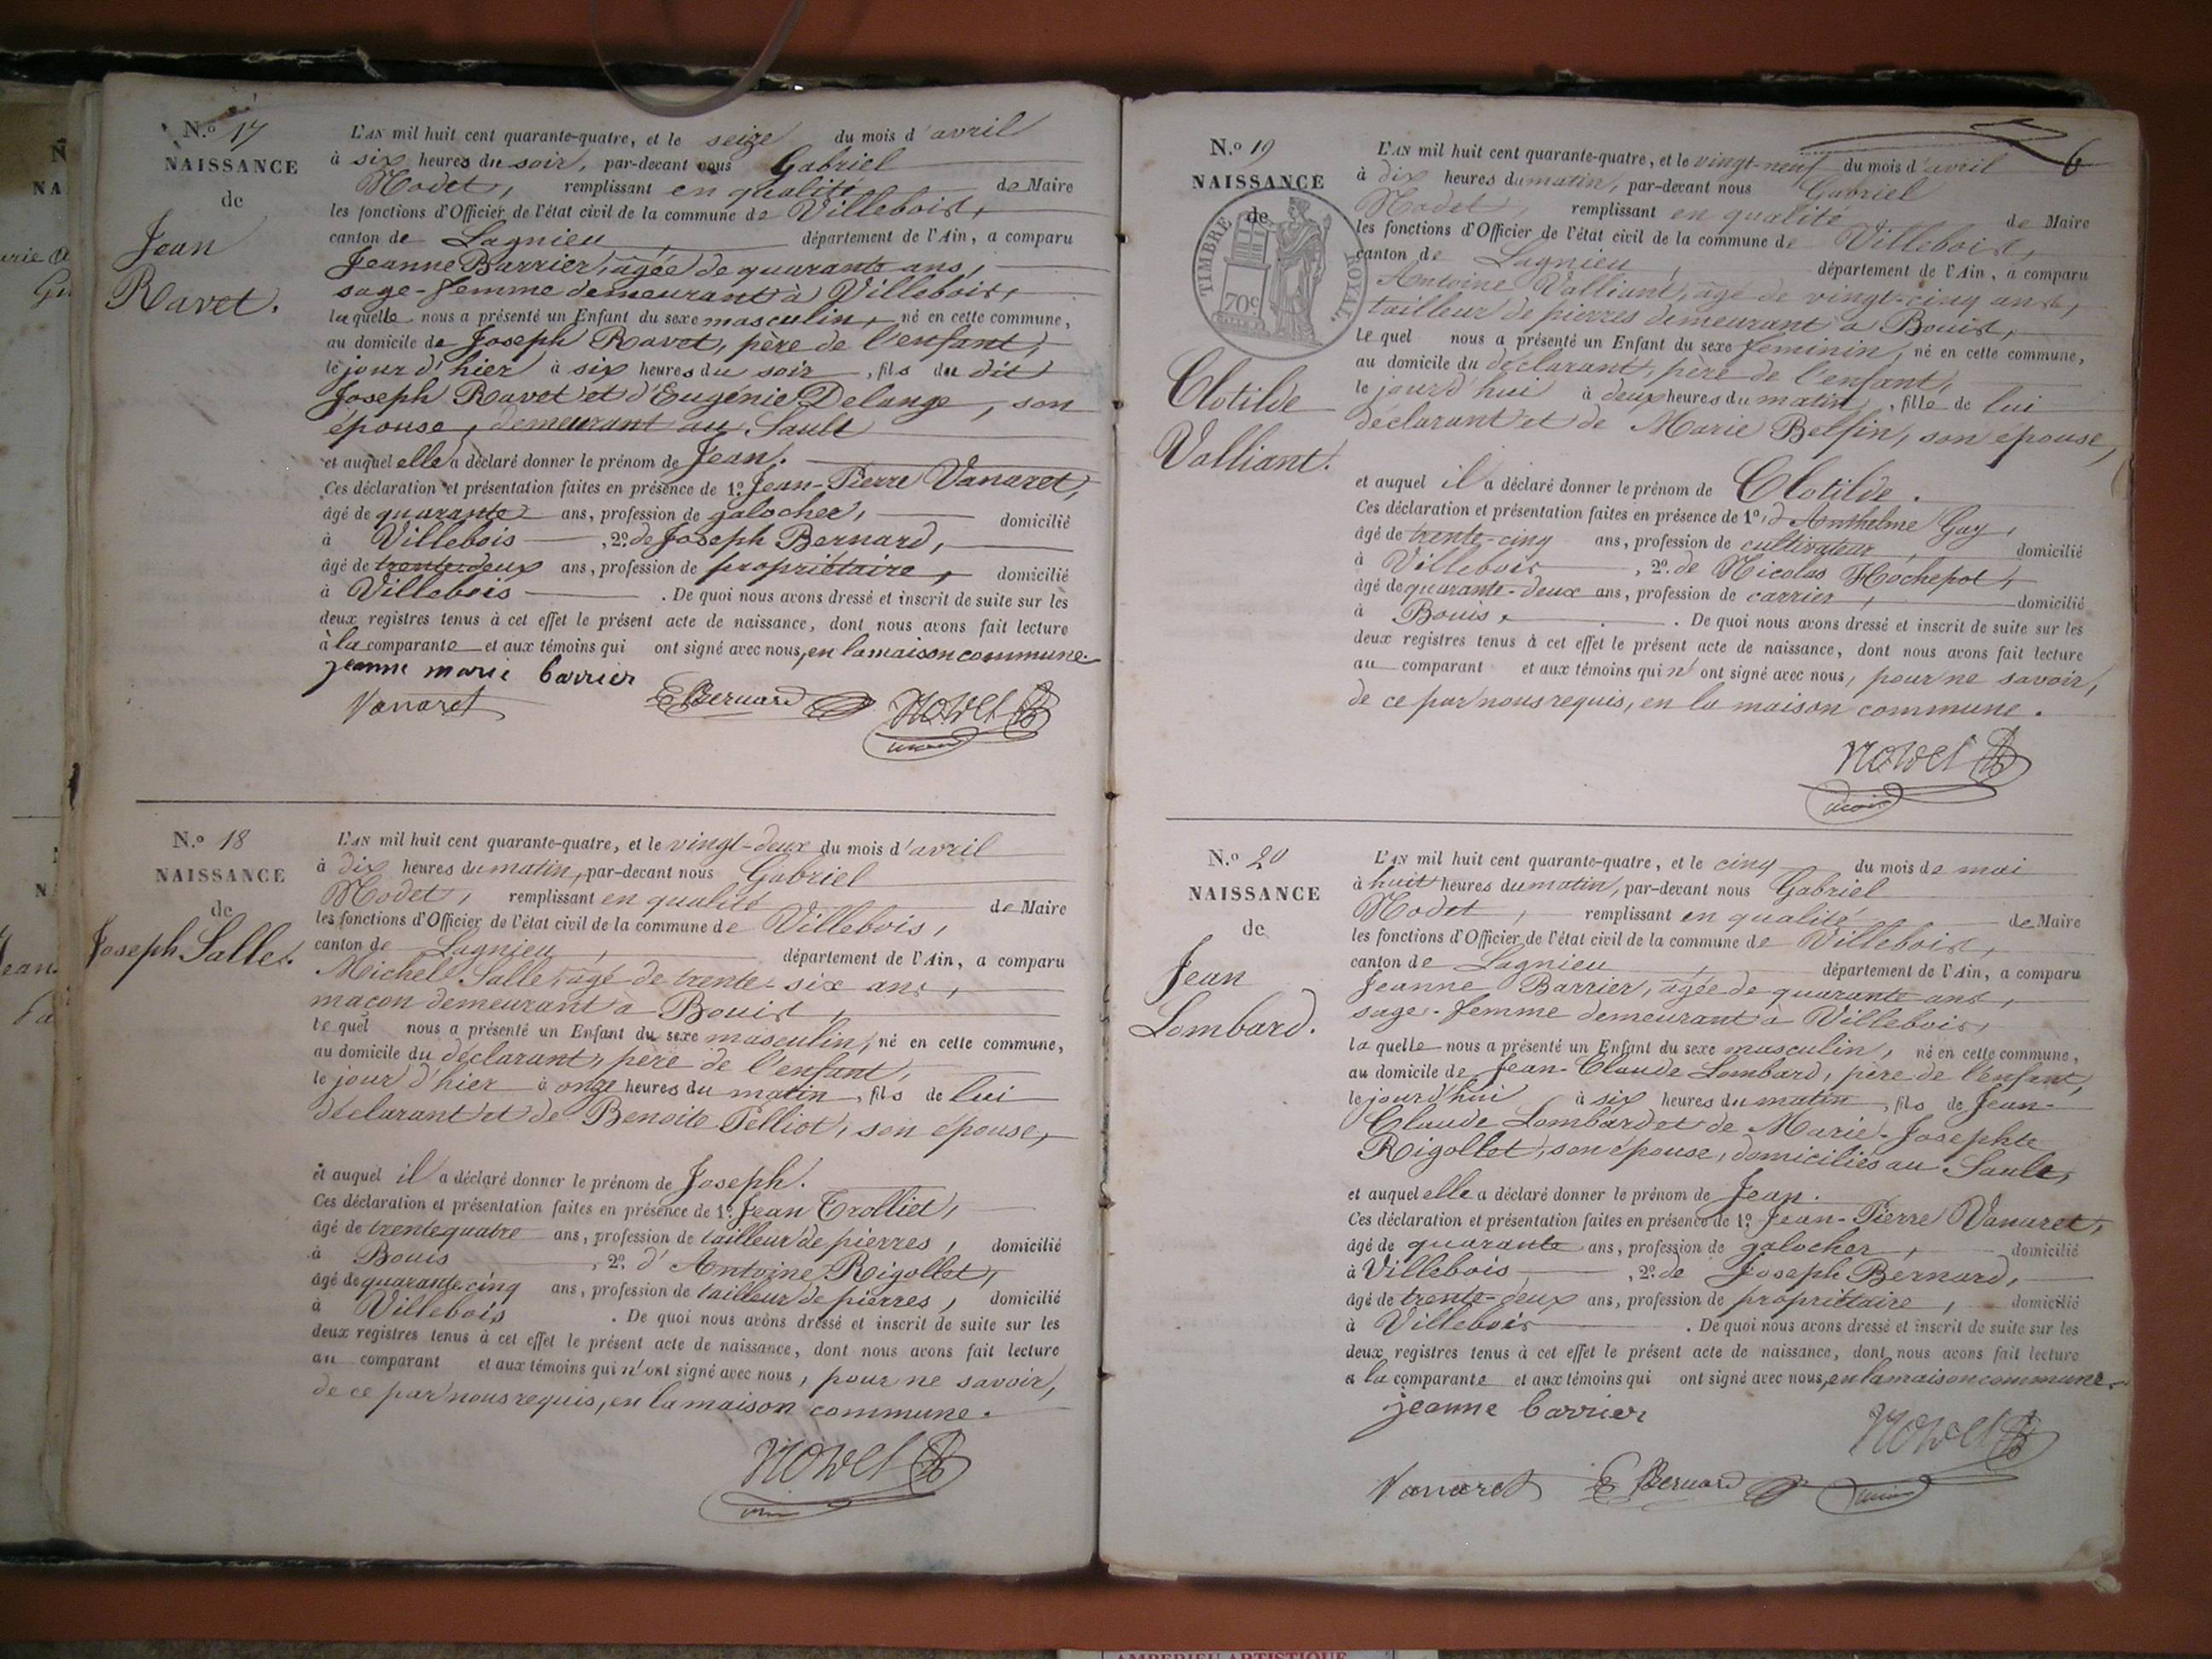 N.º 17
NAISSANCE
de
Jean
Ravet.
L'AN mil huit cent quarante-quatre, et le seize du mois d'avril
à six heures du soir, par-devant nous Gabriel
Nodet, remplissant en qualité de Maire
les fonctions d'Officier de l'état civil de la commune de Villebois,
canton de Lagnieu, département de l'Ain, a comparu
Jeanne Barrier, âgée de quarante ans,
sage-femme demeurant à Villebois,
laquelle nous a présenté un Enfant du sexe masculin, né en cette commune,
au domicile de Joseph Ravet, père de l'enfant,
le jour d'hier à six heures du soir, fils du dit
Joseph Ravet et d'Eugénie Delange, son
épouse, demeurant au Sault
et auquel elle a déclaré donner le prénom de Jean.
Ces déclaration et présentation faites en présence de 1º. Jean-Pierre Vanaret,
âgé de quarante ans, profession de galocher, domicilié
à Villebois, 2º. de Joseph Bernard,
âgé de trente-deux ans, profession de propriétaire, domicilié
à Villebois. De quoi nous avons dressé et inscrit de suite sur les
deux registres tenus à cet effet le présent acte de naissance, dont nous avons fait lecture
à la comparante et aux témoins qui ont signé avec nous, en la maison commune.
jeanne marie barrier
Vanaret E Bernard Nodet
N.º 18
NAISSANCE
de
Joseph Salle.
L'AN mil huit cent quarante-quatre, et le vingt-deux du mois d'avril
à dix heures du matin, par-devant nous Gabriel
Nodet, remplissant en qualité de Maire
les fonctions d'Officier de l'état civil de la commune de Villebois,
canton de Lagnieu, département de l'Ain, a comparu
Michel Salle, âgé de trente-six ans,
maçon demeurant à Bouis,
lequel nous a présenté un Enfant du sexe masculin, né en cette commune,
au domicile du déclarant, père de l'enfant,
le jour d'hier à onze heures du matin, fils de lui
déclarant et de Benoite Pelliot, son épouse,
et auquel il a déclaré donner le prénom de Joseph.
Ces déclaration et présentation faites en présence de 1º. Jean Trolliet,
âgé de trente quatre ans, profession de tailleur de pierres, domicilié
à Bouis, 2º. d'Antoine Rigollet,
âgé de quarante-cinq ans, profession de tailleur de pierres, domicilié
à Villebois. De quoi nous avons dressé et inscrit de suite sur les
deux registres tenus à cet effet le présent acte de naissance, dont nous avons fait lecture
au comparant et aux témoins qui n'ont signé avec nous, pour ne savoir,
de ce par nous requis, en la maison commune.
Nodet
6
N.º 19
NAISSANCE
de
TIMBRE ROYAL.
70c
Clotilde
Valliant.
L'AN mil huit cent quarante-quatre, et le vingt-neuf du mois d'avril
à dix heures du matin, par-devant nous Gabriel
Nodet, remplissant en qualité de Maire
les fonctions d'Officier de l'état civil de la commune de Villebois,
canton de Lagnieu, département de l'Ain, a comparu
Antoine Valliant, âgé de vingt-cinq ans,
tailleur de pierres demeurant à Bouis,
lequel nous a présenté un Enfant du sexe féminin, né en cette commune,
au domicile du déclarant, père de l'enfant,
le jourd'hui à deux heures du matin, fille de lui
déclarant et de Marie Belfin, son épouse,
et auquel il a déclaré donner le prénom de Clotilde.
Ces déclaration et présentation faites en présence de 1º. d'Anthelme Guy,
âgé de trente-cinq ans, profession de cultivateur, domicilié
à Villebois, 2º. de Nicolas Hochepot,
âgé de quarante-deux ans, profession de carrier, domicilié
à Bouis. De quoi nous avons dressé et inscrit de suite sur les
deux registres tenus à cet effet le présent acte de naissance, dont nous avons fait lecture
au comparant et aux témoins qui n'ont signé avec nous, pour ne savoir,
de ce par nous requis, en la maison commune.
Nodet
N.º 20
NAISSANCE
de
Jean
Lombard.
L'AN mil huit cent quarante-quatre, et le cinq du mois de mai
à huit heures du matin, par-devant nous Gabriel
Nodet, remplissant en qualité de Maire
les fonctions d'Officier de l'état civil de la commune de Villebois,
canton de Lagnieu, département de l'Ain, a comparu
Jeanne Barrier, âgée de quarante ans,
sage-femme demeurant à Villebois,
laquelle nous a présenté un Enfant du sexe masculin, né en cette commune,
au domicile de Jean-Claude Lombard, père de l'enfant,
le jourd'hui à six heures du matin, fils de Jean-
Claude Lombard et de Marie-Josephte
Rigollet, son épouse, domiciliés au Sault,
et auquel elle a déclaré donner le prénom de Jean.
Ces déclaration et présentation faites en présence de 1º. Jean-Pierre Vanaret,
âgé de quarante ans, profession de galocher, domicilié
à Villebois, 2º. de Joseph Bernard,
âgé de trente-deux ans, profession de propriétaire, domicilié
à Villebois. De quoi nous avons dressé et inscrit de suite sur les
deux registres tenus à cet effet le présent acte de naissance, dont nous avons fait lecture
à la comparante et aux témoins qui ont signé avec nous, en la maison commune.
jeanne barrier Nodet
Vanaret E Bernard